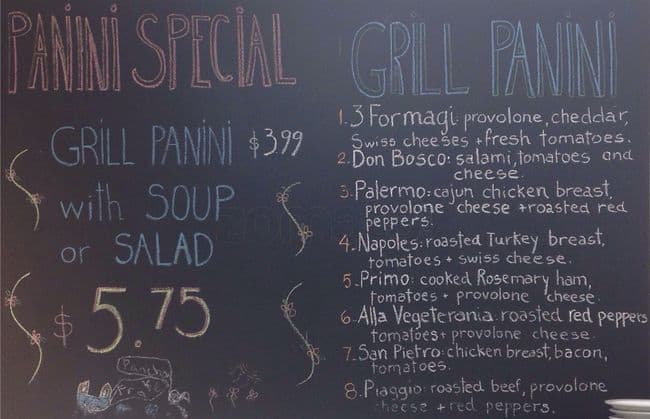 PANINI SPECIAL
GRILL PANINI $3.99
with SOUP
or SALAD
$5.75
Pancho
GRILL PANINI
1. 3 Formagi: provolone, cheddar,
Swiss cheeses + fresh tomatoes.
2. Don Bosco: salami, tomatoes and
cheese.
3. Palermo: cajun chicken breast,
provolone cheese + roasted red
peppers.
4. Napoles: roasted Turkey breast,
tomatoes + swiss cheese.
5. Primo: cooked Rosemary ham,
tomatoes + provolone cheese.
6. Alla Vegeterania: roasted red peppers
tomatoes + provolone cheese.
7. San Pietro: chicken breast, bacon,
tomatoes.
8. Piaggio: roasted beef, provolone
cheese + red peppers.